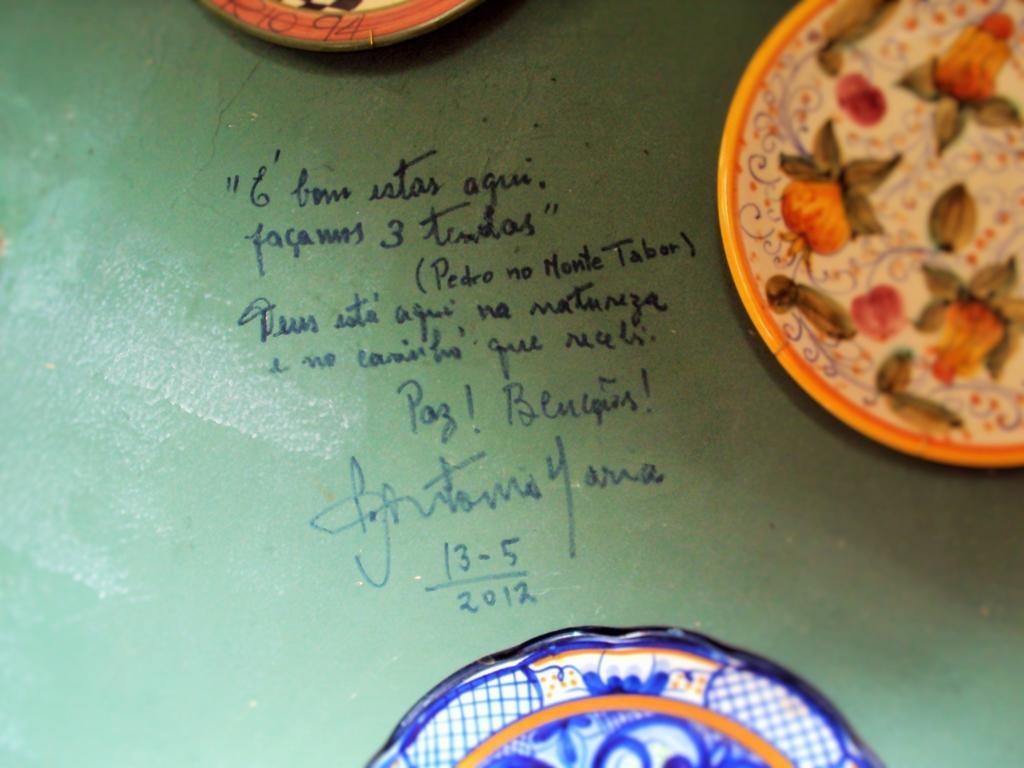 10 94
"É bom estar aqui.
façamos 3 tendas"
(Pedro no Monte Tabor)
Deus está aqui na natureza
e no carinho que recebi.
Paz! Bençãos!
P. Antonio Maria
13-5
2012